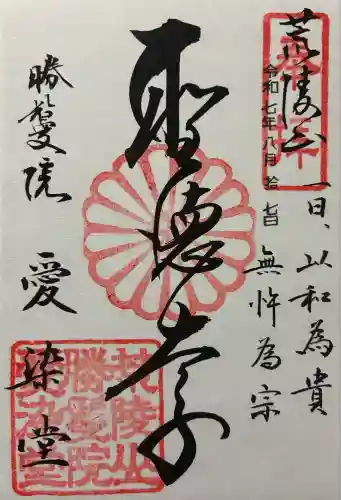 荒陵山
奉拝
令和七年八月拾七日
一曰、以和為貴
無忤為宗
聖徳太子
勝鬘院 愛染堂
荒陵山
勝鬘院
愛染堂